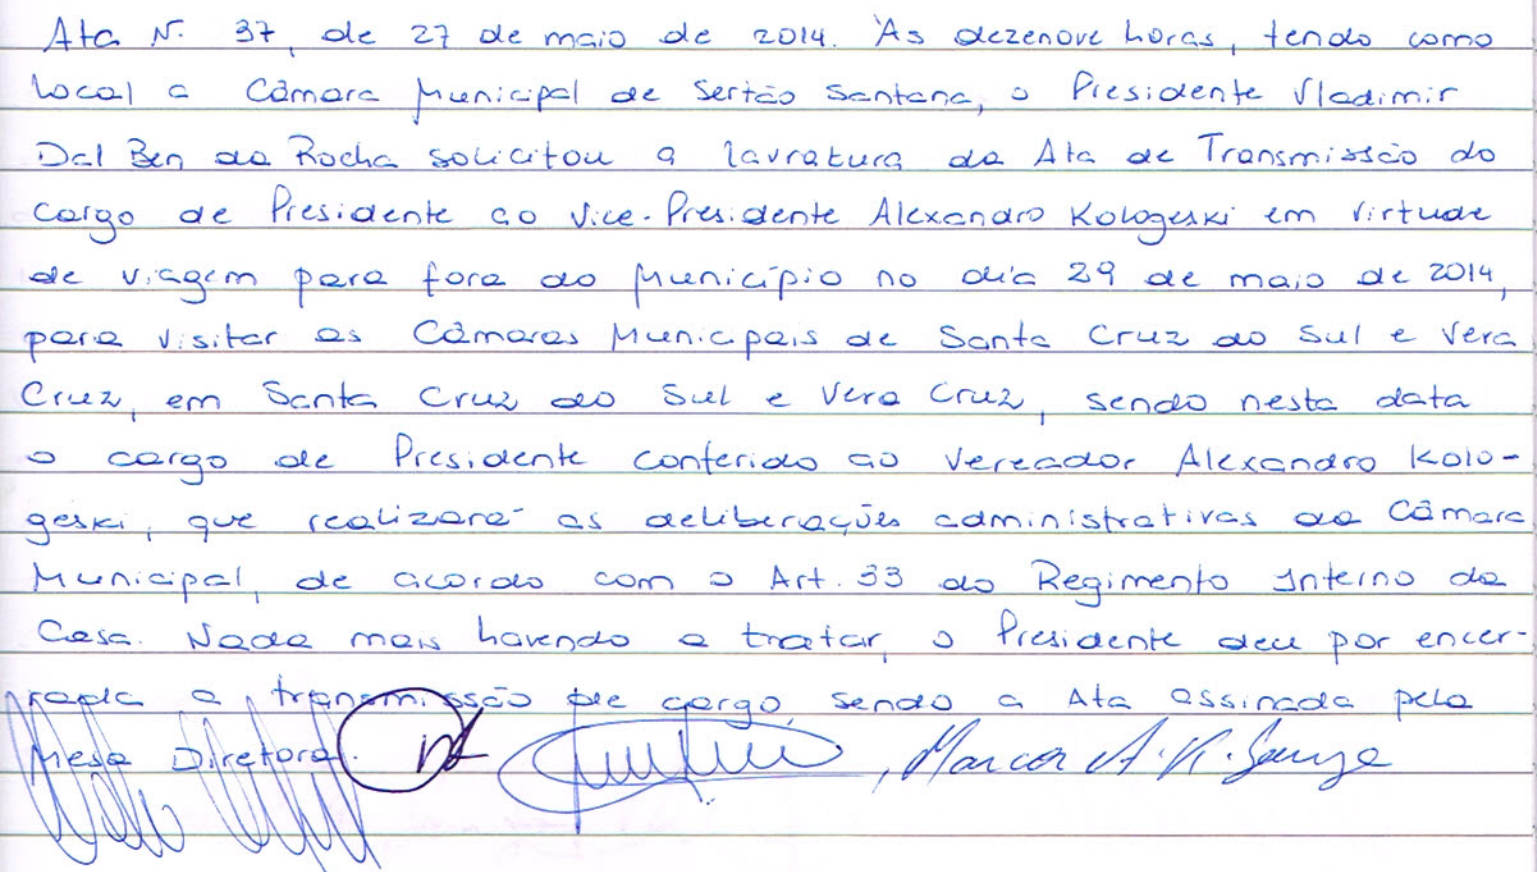 Ata N. 37, de 27 de maio de 2014. Às dezenove horas, tendo como
local a Câmara Municipal de Sertão Santana, o Presidente Vladimir
Dal Ben da Rocha solicitou a lavratura da Ata de Transmissão do
cargo de Presidente ao Vice-Presidente Alexandro Kologeski em virtude
de viagem para fora do Município no dia 29 de maio de 2014,
para visitar as Câmaras Municipais de Santa Cruz do Sul e Vera
Cruz, em Santa Cruz do Sul e Vera Cruz, sendo nesta data
o cargo de Presidente conferido ao Vereador Alexandro Kolo-
geski, que realizará as deliberações administrativas da Câmara
Municipal, de acordo com o Art. 33 do Regimento Interno da
Casa. Nada mais havendo a tratar, o Presidente deu por encer-
rada a transmissão de cargo, sendo a Ata assinada pela
Mesa Diretora. , Marcor A. K.